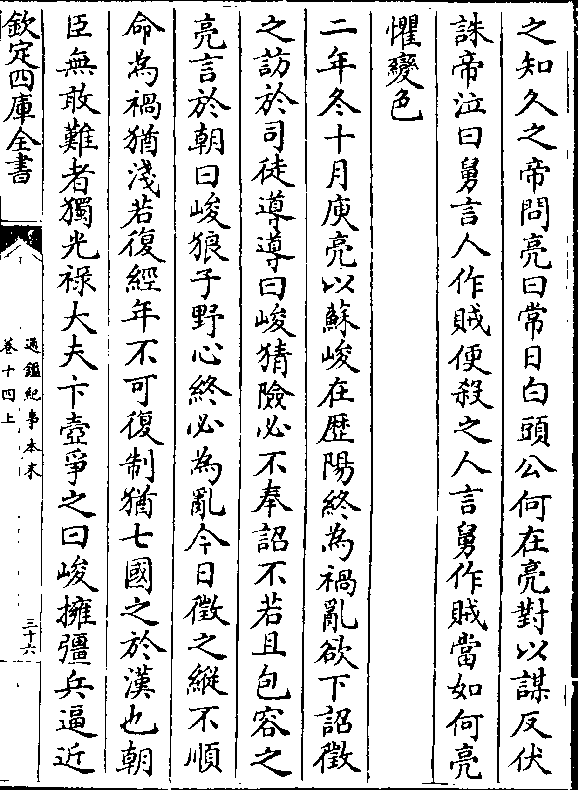 之知久之帝問亮曰常日白頭公何在亮對以謀反伏
誅帝泣曰舅言人作賊便殺之人言舅作賊當如何亮
懼變色
二年冬十月庾亮以蘇峻在歷陽終為禍亂欲下詔徵
之訪於司徒導導曰峻猜險必不奉詔不若且包容之
亮言於朝曰峻狼子野心終必為亂今日徵之縱不順
命為禍猶淺若復經年不可復制猶七國之於漢也朝
臣無敢難者獨光祿大夫卞壼爭之曰峻擁彊兵逼近
欽定四庫全書
通鑑紀事本末
卷十四上
三十六